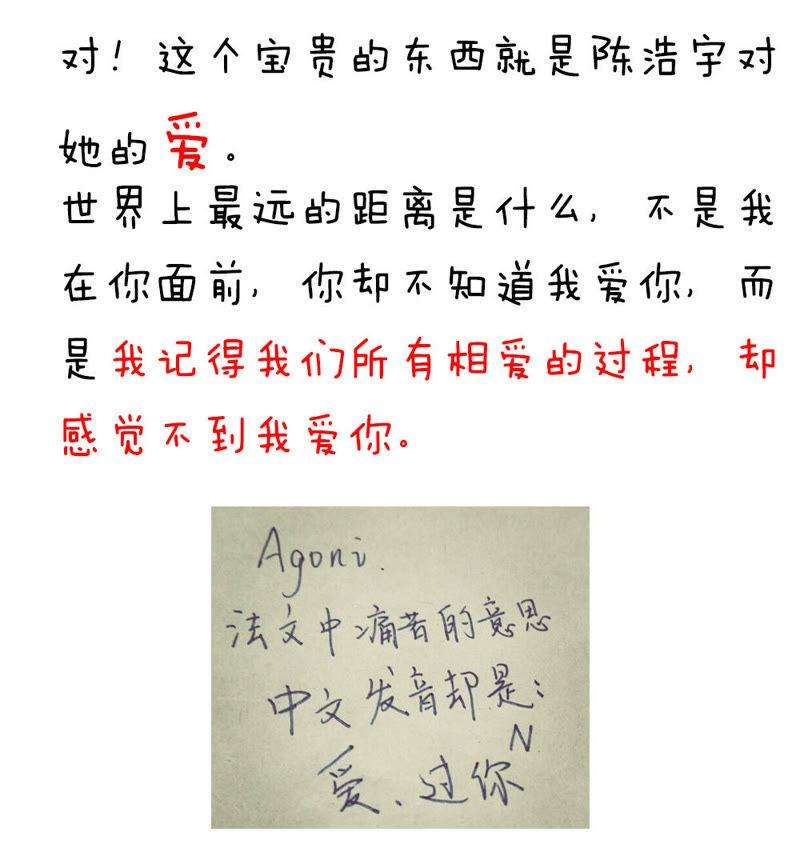 对！这个宝贵的东西就是陈浩宇对
她的爱。
世界上最远的距离是什么，不是我
在你面前，你却不知道我爱你，而
是我记得我们所有相爱的过程，却
感觉不到我爱你。
Agoni.
法文中痛苦的意思
中文发音却是：
N
爱、过你